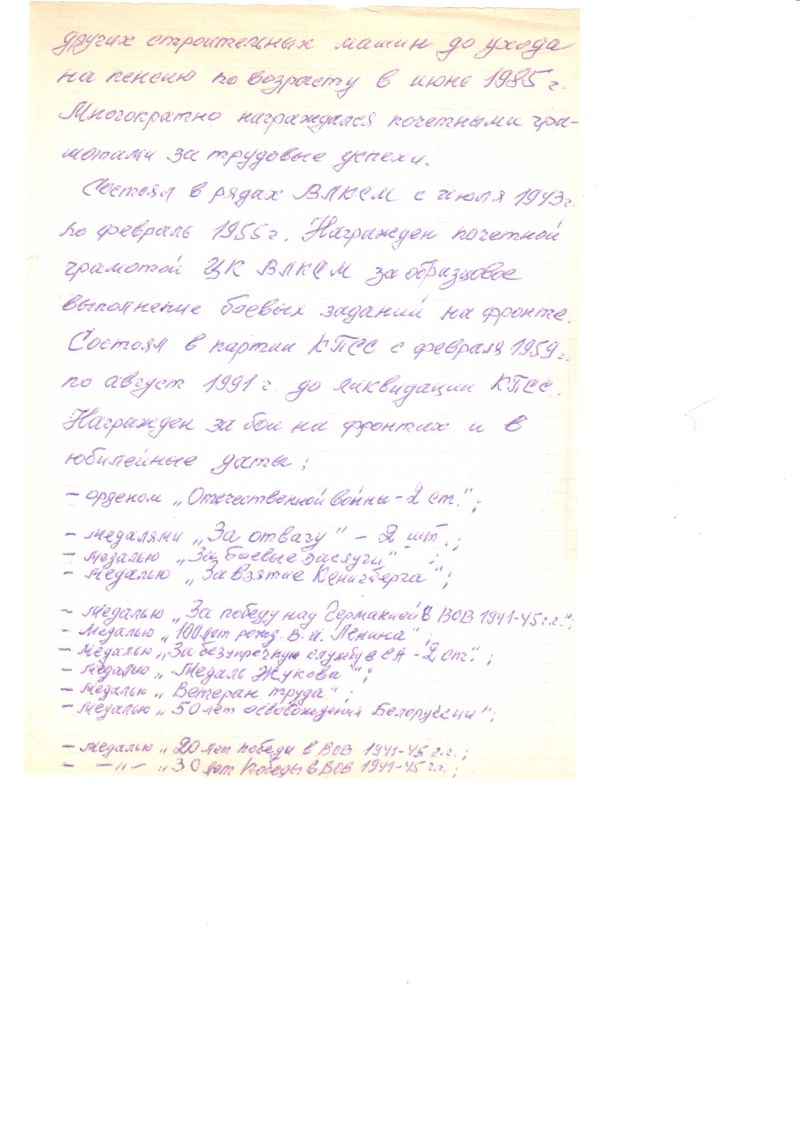 других строительных машин до ухода
на пенсию по возрасту в июне 1985 г.
Многократно награждался почетными гра-
мотами за трудовые успехи.
Состоял в рядах ВЛКСМ с июля 1943г.
по февраль 1955г. Награжден почетной
грамотой ЦК ВЛКСМ за образцовое
выполнение боевых заданий на фронте.
Состоял в партии КПСС с февраля 1959г.
по август 1991 г. до ликвидации КПСС.
Награжден за бои на фронтах и в
юбилейные даты:
- орденом „Отечественной войны - 2 ст.";
- медалями „За отвагу" - 2 шт.;
- медалью „За боевые заслуги";
- медалью „За взятие Кенигберга";
- медалью „За победу над Германией в ВОВ 1941-45 г.г.";
- медалью „100 лет рожд. В.И. Ленина";
- медалью „За безупречную службу в СА - 2 ст.";
- медалью „Медаль Жукова";
- медалью „Ветеран труда";
- медалью „50 лет освобождения Белоруссии";
- медалью „20 лет победы в ВОВ 1941-45 г.г.;
- -"- „30 лет Победы в ВОВ 1941-45 г.г.;